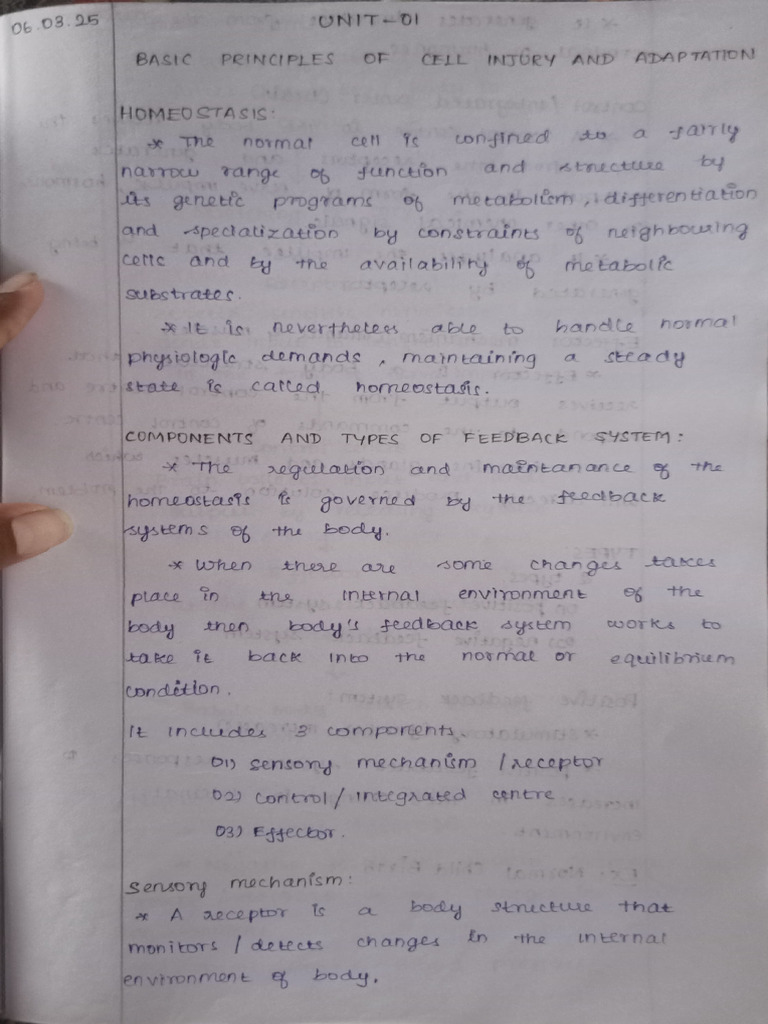 06.03.25
UNIT-01
BASIC PRINCIPLES OF CELL INJURY AND ADAPTATION
HOMEOSTASIS:
* The normal cell is confined to a fairly
narrow range of function and structure by
its genetic programs of metabolism, differentiation
and specialization by constraints of neighbouring
cells and by the availability of metabolic
substrates.
* It is nevertheless able to handle normal
physiologic demands, maintaining a steady
state is called homeostasis.
COMPONENTS AND TYPES OF FEEDBACK SYSTEM:
* The regulation and maintanance of the
homeostasis is governed by the feedback
systems of the body.
* When there are some changes takes
place in the internal environment of the
body then body's feedback system works to
take it back into the normal or equilibrium
condition.
It includes 3 components.
01) sensory mechanism / receptor
02) control / integrated centre
03) Effector.
Sensory mechanism:
* A receptor is a body structure that
monitors / detects changes in the internal
environment of body.